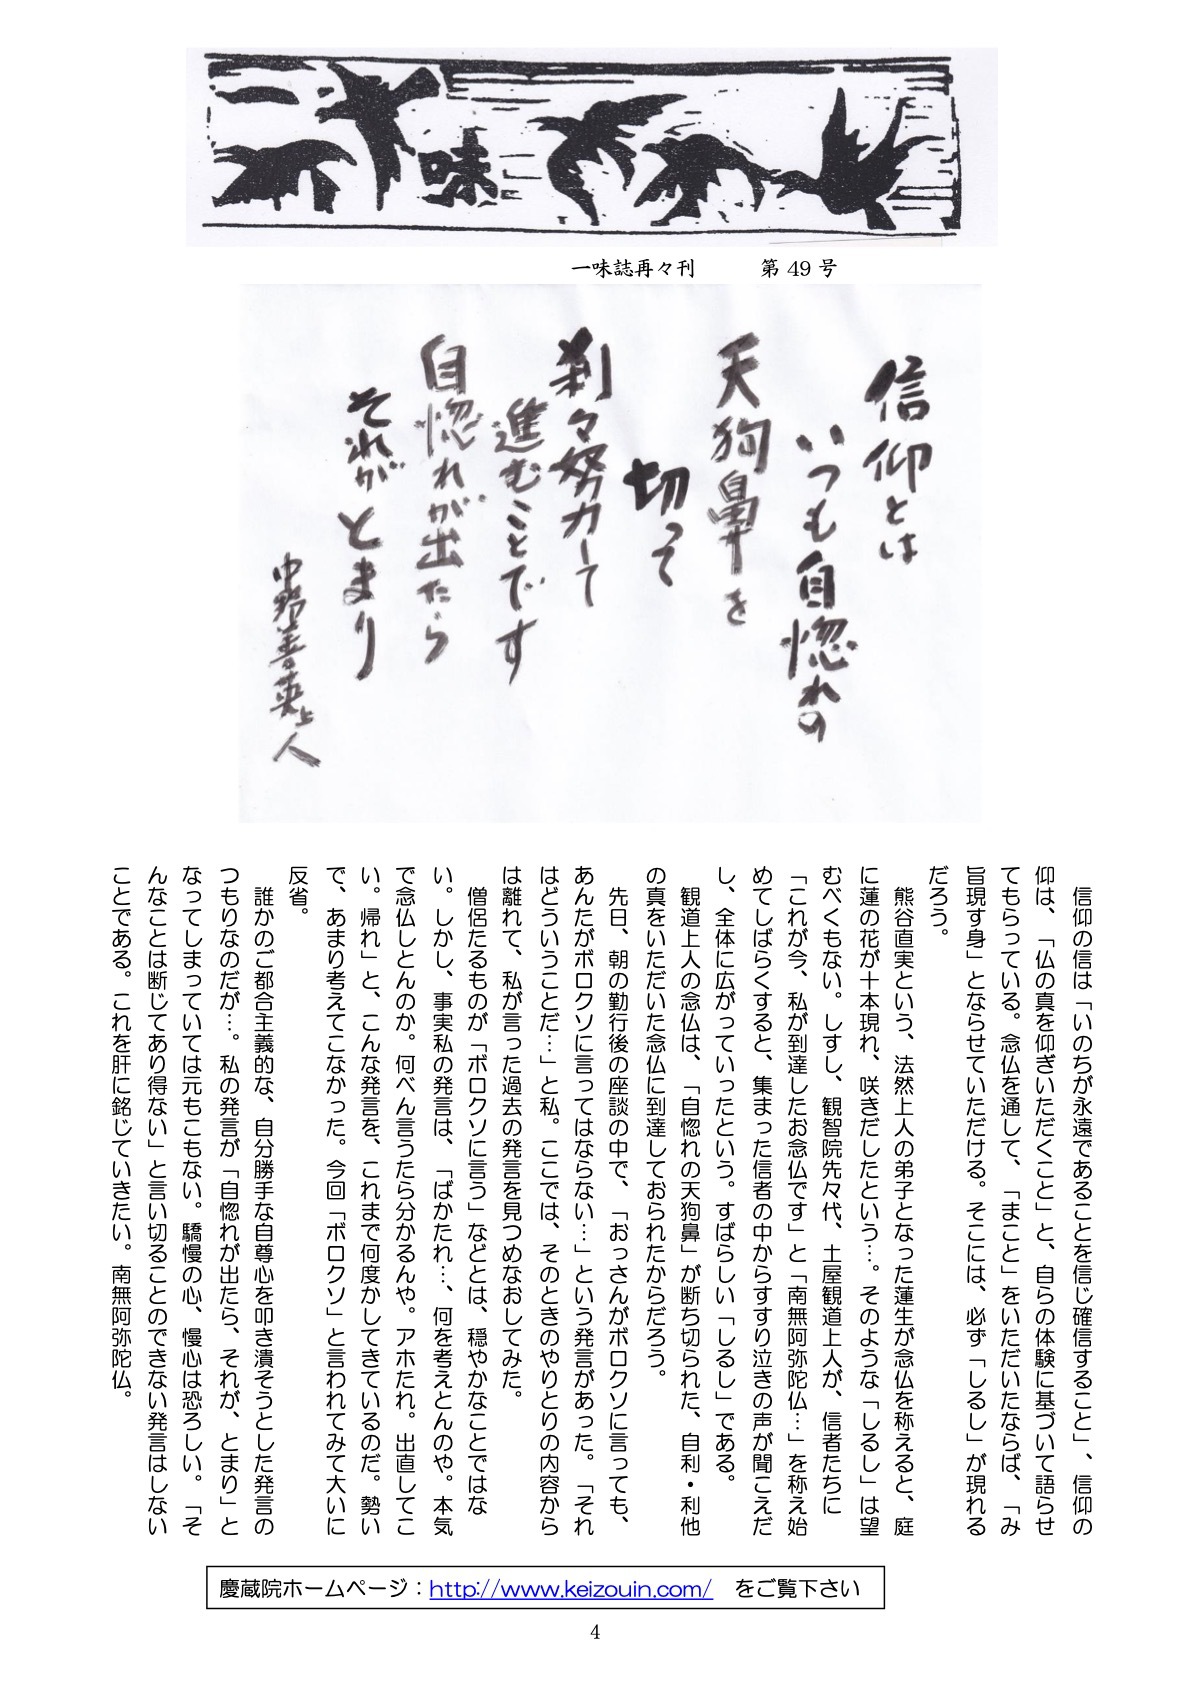 一味
一味誌再々刊　第 49 号
信仰とは
いつも自惚れの
天狗鼻を
切って
刹々努力して
進むことです
自惚れが出たら
それがとまり
中野善英上人
信仰の信は「いのちが永遠であることを信じ確信すること」、信仰の
仰は、「仏の真を仰ぎいただくこと」と、自らの体験に基づいて語らせ
てもらっている。念仏を通して、「まこと」をいただいたならば、「み
旨現す身」とならせていただける。そこには、必ず「しるし」が現れる
だろう。
熊谷直実という、法然上人の弟子となった蓮生が念仏を称えると、庭
に蓮の花が十本現れ、咲きだしたという…。そのような「しるし」は望
むべくもない。しすし、観智院先々代、土屋観道上人が、信者たちに
「これが今、私が到達したお念仏です」と「南無阿弥陀仏…」を称え始
めてしばらくすると、集まった信者の中からすすり泣きの声が聞こえだ
し、全体に広がっていったという。すばらしい「しるし」である。
観道上人の念仏は、「自惚れの天狗鼻」が断ち切られた、自利・利他
の真をいただいた念仏に到達しておられたからだろう。
先日、朝の勤行後の座談の中で、「おっさんがボロクソに言っても、
あんたがボロクソに言ってはならない…」という発言があった。「それ
はどういうことだ…」と私。ここでは、そのときのやりとりの内容から
は離れて、私が言った過去の発言を見つめなおしてみた。
僧侶たるものが「ボロクソに言う」などとは、穏やかなことではな
い。しかし、事実私の発言は、「ばかたれ…、何を考えとんのや。本気
で念仏しとんのか。何べん言うたら分かるんや。アホたれ。出直してこ
い。帰れ」と、こんな発言を、これまで何度かしてきているのだ。勢い
で、あまり考えてこなかった。今回「ボロクソ」と言われてみて大いに
反省。
誰かのご都合主義的な、自分勝手な自尊心を叩き潰そうとした発言の
つもりなのだが…。私の発言が「自惚れが出たら、それが、とまり」と
なってしまっていては元もこもない。驕慢の心、慢心は恐ろしい。「そ
んなことは断じてあり得ない」と言い切ることのできない発言はしない
ことである。これを肝に銘じていきたい。南無阿弥陀仏。
慶蔵院ホームページ：http://www.keizouin.com/　をご覧下さい
4